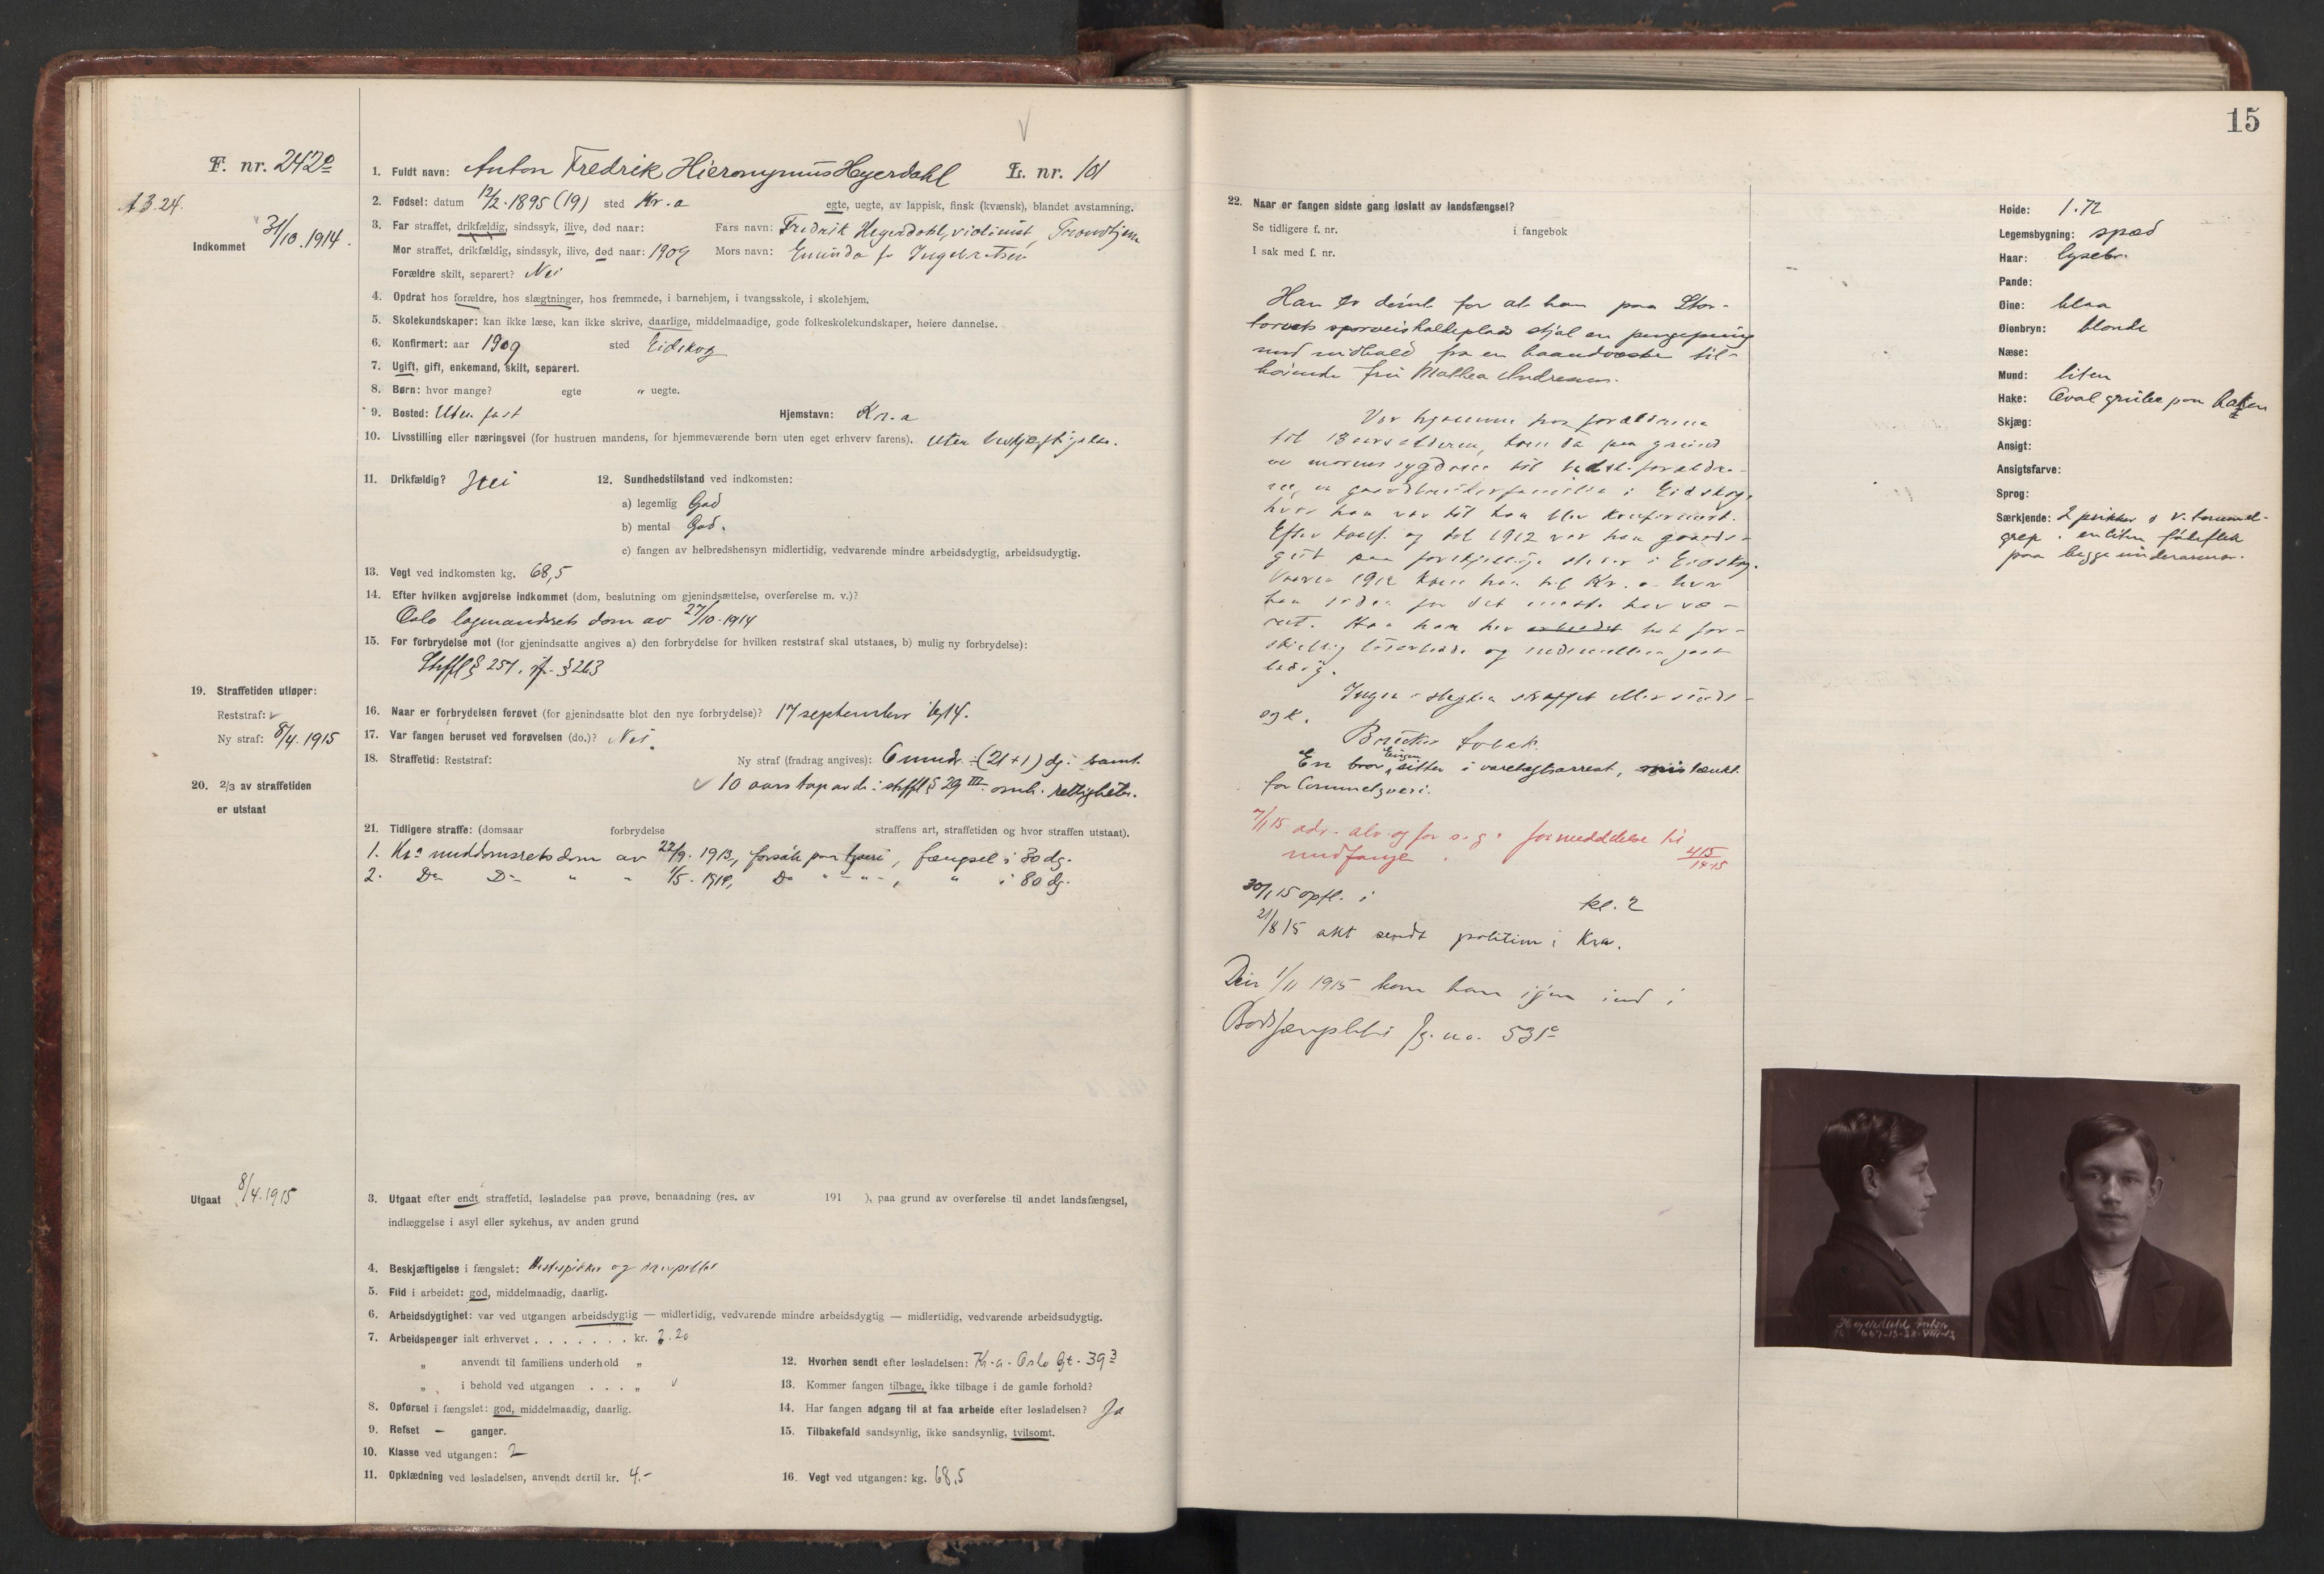 15
F. nr. 242
A 3.24.
Indkommet 31/10.1914.
1. Fuldt navn: Anton Fredrik Hieronymus Heyerdahl L. nr. 101
2. Fødsel: datum 12/2.1895 (19) sted Kr.a egte, uegte, av lappisk, finsk (kvænsk), blandet avstamning.
3. Far straffet, drikfældig, sindssyk, ilive, død naar: Fars navn: Fredrik Heyerdahl, violinist, Trondhjem
Mor straffet, drikfældig, sindssyk, ilive, død naar: 1909 Mors navn: f. Ingebretsen
Forældre skilt, separert? Nei
4. Opdrat hos forældre, hos slægtninger, hos fremmede, i barnehjem, i tvangsskole, i skolehjem.
5. Skolekundskaper: kan ikke læse, kan ikke skrive, daarlige, middelmaadige, gode folkeskolekundskaper, høiere dannelse.
6. Konfirmert: aar 1909 sted Eidskog
7. Ugift, gift, enkemand, skilt, separert.
8. Børn: hvor mange? egte " uegte.
9. Bosted: Uten fast Hjemstavn: Kr.a
10. Livsstilling eller næringsvei (for hustruen mandens, for hjemmeværende børn uten eget erhverv farens). uten beskjæftigelse.
11. Drikfældig? Nei 12. Sundhedstilstand ved indkomsten:
a) legemlig God
b) mental God.
c) fangen av helbredshensyn midlertidig, vedvarende mindre arbeidsdygtig, arbeidsudygtig.
13. Vegt ved indkomsten kg. 68,5
14. Efter hvilken avgjørelse indkommet (dom, beslutning om gjenindsættelse, overførelse m. v.)?
Oslo lagmandsrets dom av 27/10-1914
15. For forbrydelse mot (for gjenindsatte angives a) den forbrydelse for hvilken reststraf skal utstaaes, b) mulig ny forbrydelse):
Strffl § 257, jf. § 263
19. Straffetiden utløper:
Reststraf:
Ny straf: 8/4.1915
16. Naar er forbrydelsen forøvet (for gjenindsatte blot den nye forbrydelse)? 17 september 1914.
17. Var fangen beruset ved forøvelsen (do.)? Nei.
18. Straffetid: Reststraf: Ny straf (fradrag angives): 6 mndr. ÷ (21+1) dg. samt
10 aars tap av de i strffl § 29 III omh. rettigheter.
20. 2/3 av straffetiden
er utstaat
21. Tidligere straffe: (domsaar forbrydelse straffens art, straffetiden og hvor straffen utstaat).
1. Kra meddomsrets dom av 22/9. 1913, forsøk paa tyveri, fængsel i 30 dg.
2. Do Do " " 1/5. 1914, Do " - " - , " i 80 dg.
Utgaat 8/4.1915
3. Utgaat efter endt straffetid, løsladelse paa prøve, benaadning (res. av 191 ), paa grund av overførelse til andet landsfængsel,
indlæggelse i asyl eller sykehus, av anden grund
4. Beskjæftigelse i fængslet: og
5. Flid i arbeidet: god, middelmaadig, daarlig.
6. Arbeidsdygtighet: var ved utgangen arbeidsdygtig — midlertidig, vedvarende mindre arbeidsdygtig — midlertidig, vedvarende arbeidsudygtig.
7. Arbeidspenger ialt erhvervet . . . . . . . kr. 7.20
" anvendt til familiens underhold "
" i behold ved utgangen . . . "
8. Opførsel i fængslet: god, middelmaadig, daarlig.
9. Refset — ganger.
10. Klasse ved utgangen: 2
11. Opklædning ved løsladelsen, anvendt dertil kr. 4.-
12. Hvorhen sendt efter løsladelsen: Kr.a. Oslo Gt. 39 3
13. Kommer fangen tilbage, ikke tilbage i de gamle forhold?
14. Har fangen adgang til at faa arbeide efter løsladelsen? Ja
15. Tilbakefald sandsynlig, ikke sandsynlig, tvilsomt.
16. Vegt ved utgangen: kg. 68,5
22. Naar er fangen sidste gang løslatt av landsfængsel?
Se tidligere f. nr. i fangebok
I sak med f. nr.
Han er dømt for at han paa Stor-
torvets sporveisholdeplads stjal en pengepung
med indhold fra en haandvæske til-
hørende fru Mathea Andresen.
Var hjemme hos forældrene
til 13 aars alderen, kom da paa grund
av morens sygdom til bedsteforældre-
ne, en gaardbrukerfamilie i Eidskog,
hvor han var til han blev konfirmert.
Efter konf. og til 1912 var han gaards-
gut paa forskjellige steder i Eidskog.
Vaaren 1912 kom han til Kr.a hvor
han siden for det meste har væ-
ret. Her har han hat for-
skjellig løsarbeide og indimellem gaat
ledig.
Ingen i slegten straffet eller sinds-
syk.
Bruker tobak.
En bror, Einar sitter i varetægtsarrest, mistænkt
for lommetyveri.
7/1 15 adv. alv. og for s. g. formeddelelse til
medfange. 415/14-15
30/1 15 opfl. i kl. 2
21/8 15 akt sendt politiet i Kra.
Den 1/11 1915 kom han igjen ind i
Botsfængslet fg. no. 531
Høide: 1.72
Legemsbygning: spæd
Haar: lysebr.
Pande:
Øine: blaa
Øienbryn: blonde
Næse:
Mund: liten
Hake: Oval grube paa haken
Skjæg:
Ansigt:
Ansigtsfarve:
Sprog:
Særkjende: 2 prikker i v. tommel-
grep. en liten føfleflek
paa begge underarmer.
Heyerdahl Anton